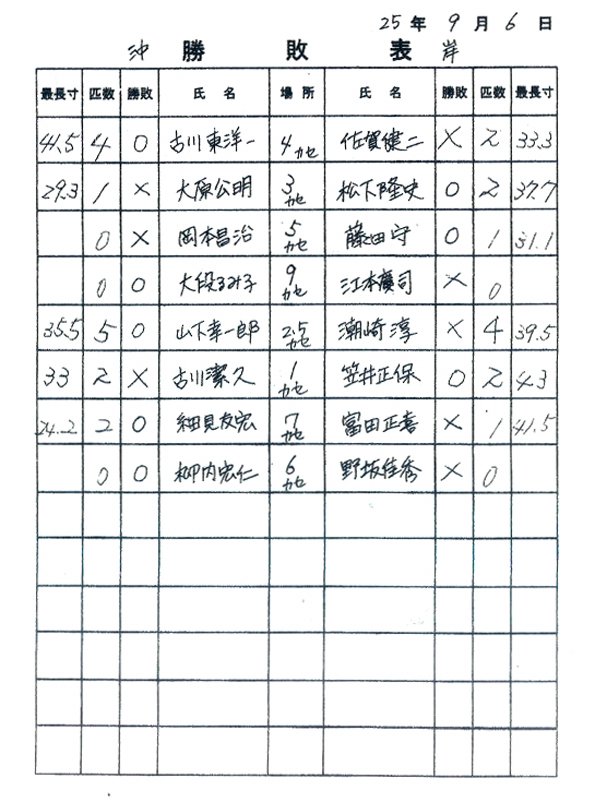 25年 9月 6日
沖 勝敗表 岸
最長寸 匹数 勝敗 氏名 場所 氏名 勝敗 匹数 最長寸
41.5 4 O 古川東洋一 4カセ 佐賀健二 × 2 33.3
29.3 1 × 大原公明 3カセ 松下隆史 O 2 37.7
0 × 岡本昌治 5カセ 藤田守 O 1 31.1
0 O 大段るみ子 9カセ 江本廣司 × 0
35.5 5 O 山下幸一郎 2.5カセ 潮崎淳 × 4 39.5
33 2 × 古川潔久 1カセ 笠井正保 O 2 43
24.2 2 O 細見友宏 7カセ 富田正喜 × 1 41.5
0 O 柳内宏仁 6カセ 野坂佳秀 × 0